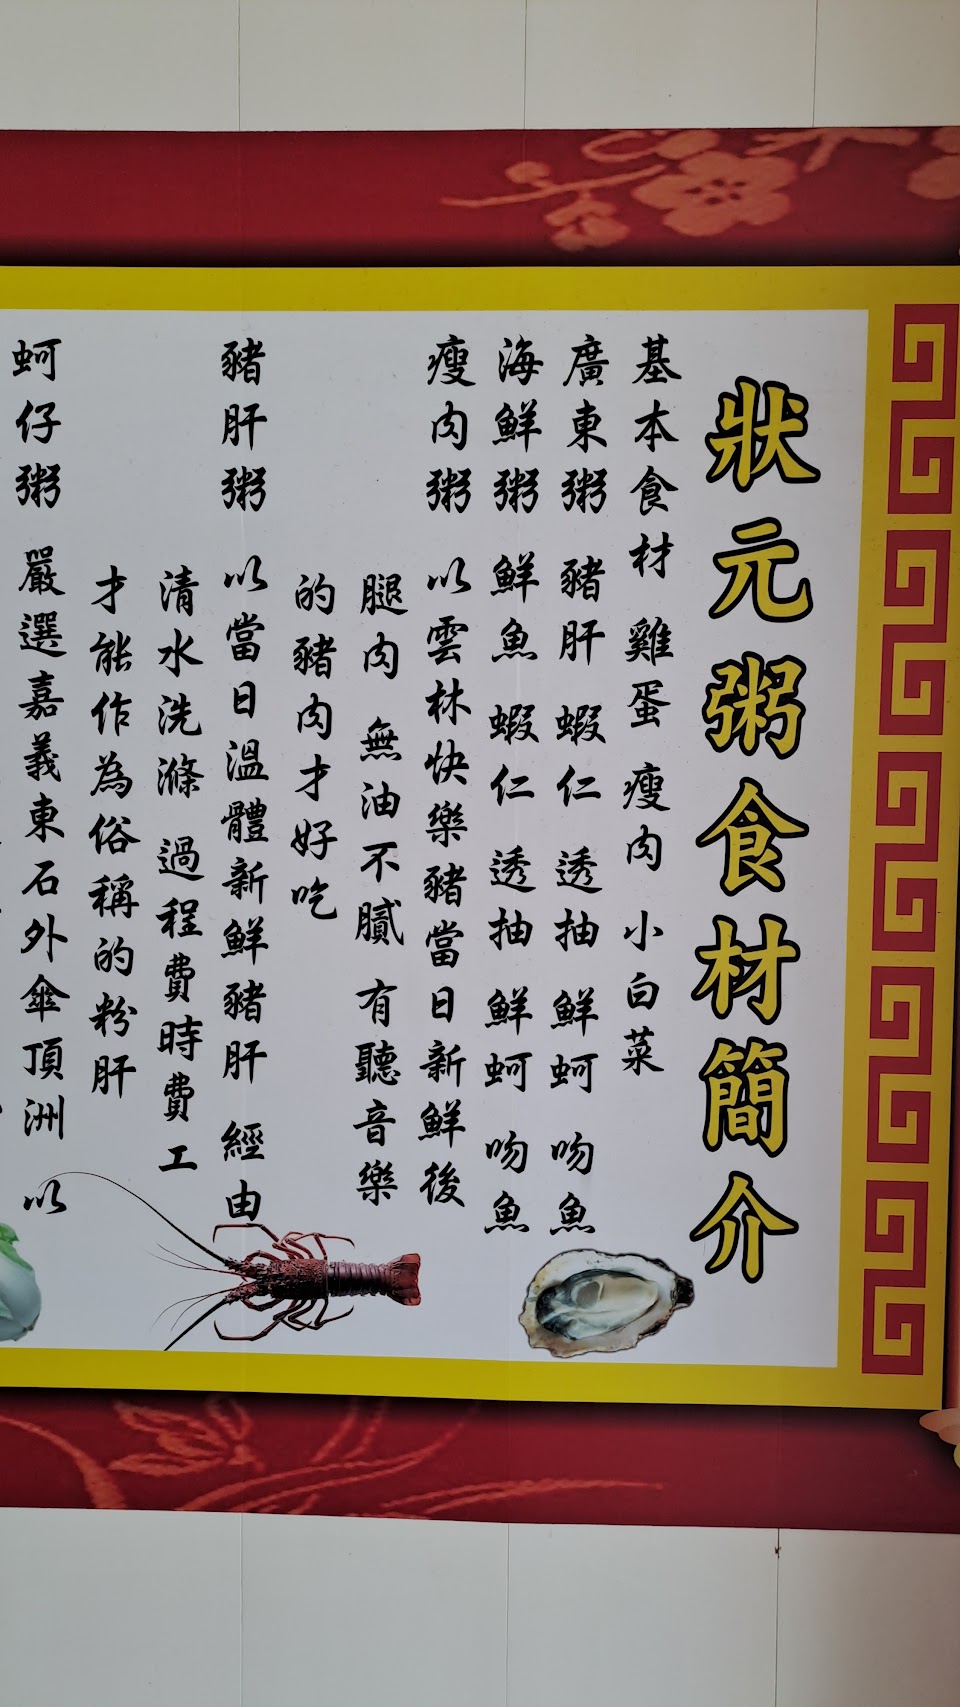 狀元粥食材簡介
基本食材 雞蛋 瘦肉 小白菜
廣東粥 豬肝 蝦仁 透抽 鮮蚵 吻魚
海鮮粥 鮮魚 蝦仁 透抽 鮮蚵 吻魚
瘦肉粥 以雲林快樂豬當日新鮮後
腿肉 無油不膩 有聽音樂
的豬肉才好吃
豬肝粥 以當日溫體新鮮豬肝 經由
清水洗滌 過程費時費工
才能作為俗稱的粉肝
蚵仔粥 嚴選嘉義東石外傘頂洲 以